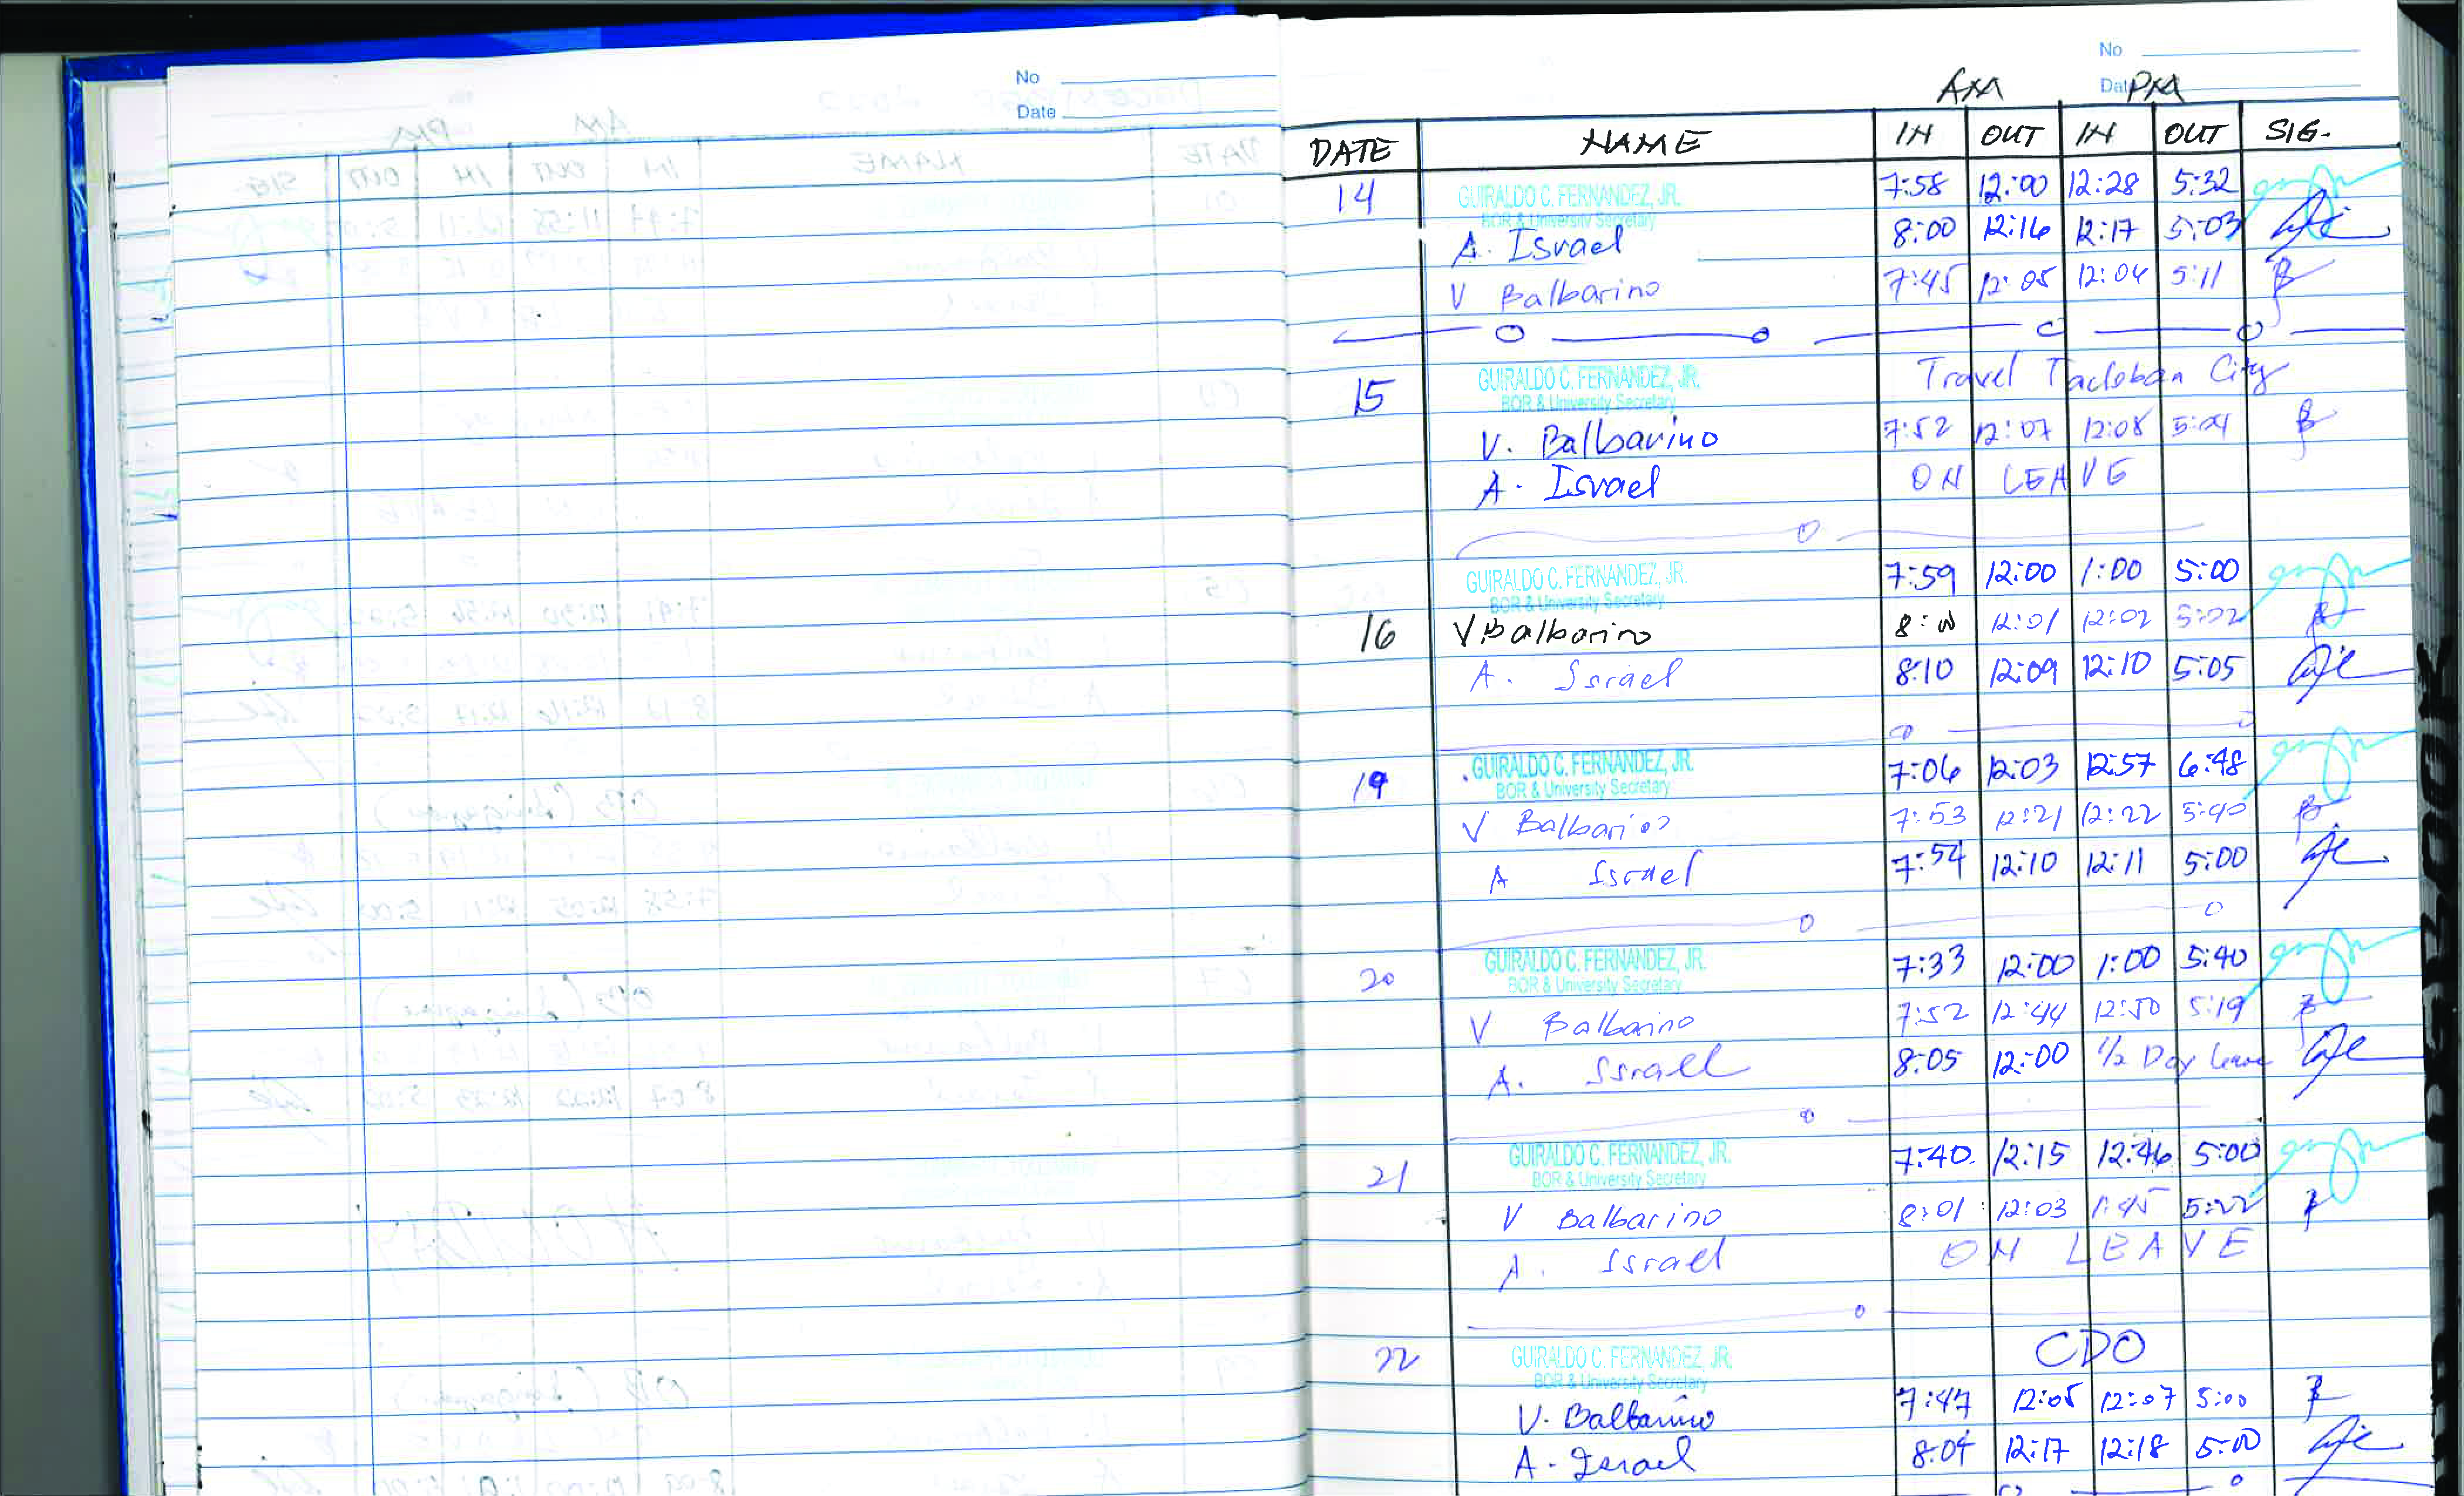 No
Date
No
Date
AM PM
DATE NAME IN OUT IN OUT SIG.
14 GUIRALDO C. FERNANDEZ, JR. 7:58 12:00 12:28 5:32
BOR & University Secretary
A. Israel 8:00 12:16 12:17 5:03
V Balbarino 7:45 12:05 12:04 5:11
15 GUIRALDO C. FERNANDEZ, JR. Travel Tacloban City
BOR & University Secretary
V. Balbarino 7:52 12:07 12:08 5:04
A. Israel ON LEAVE
GUIRALDO C. FERNANDEZ, JR. 7:59 12:00 1:00 5:00
BOR & University Secretary
16 V Balbarino 8:00 12:01 12:02 5:02
A. Israel 8:10 12:09 12:10 5:05
19 GUIRALDO C. FERNANDEZ, JR. 7:06 12:03 12:57 6:48
BOR & University Secretary
V Balbarino 7:53 12:21 12:22 5:40
A Israel 7:54 12:10 12:11 5:00
20 GUIRALDO C. FERNANDEZ, JR. 7:33 12:00 1:00 5:40
BOR & University Secretary
V Balbarino 7:52 12:44 12:50 5:19
A. Israel 8:05 12:00 1/2 Day leave
21 GUIRALDO C. FERNANDEZ, JR. 7:40 12:15 12:46 5:00
BOR & University Secretary
V Balbarino 8:01 12:03 1:45 5:22
A. Israel ON LEAVE
22 GUIRALDO C. FERNANDEZ, JR. CDO
BOR & University Secretary
V. Balbarino 7:47 12:05 12:07 5:00
A. Israel 8:04 12:17 12:18 5:00